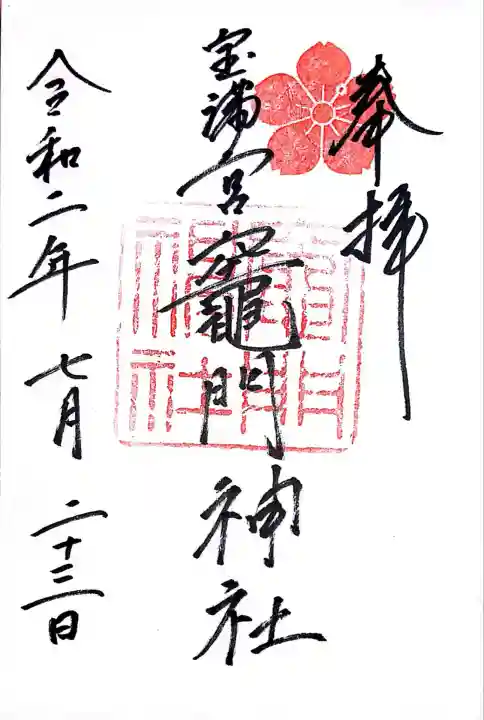 奉拝
宝満宮竈門神社
竈門神社
令和二年七月二十三日